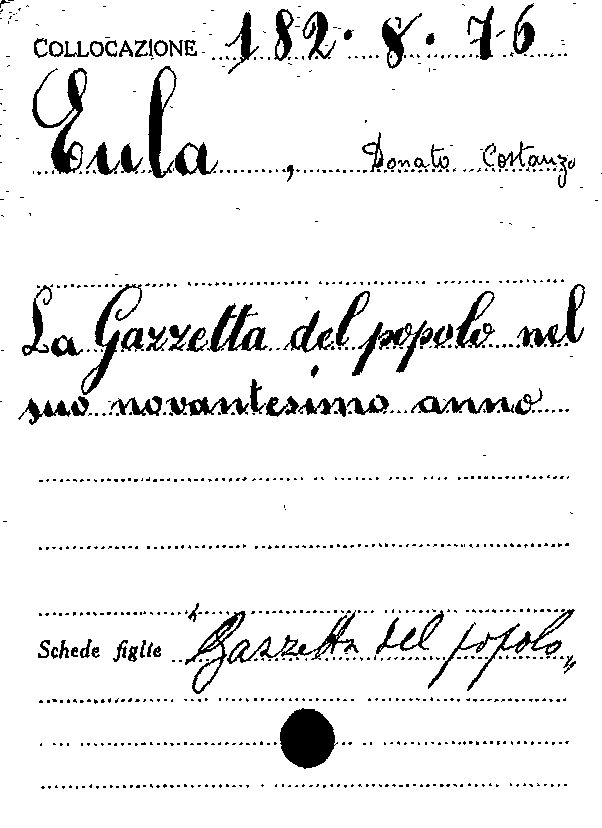 COLLOCAZIONE 182.8.76
Eula, Donato Costanzo
La Gazzetta del popolo nel
suo novantesimo anno
Schede figlie "Gazzetta del popolo"